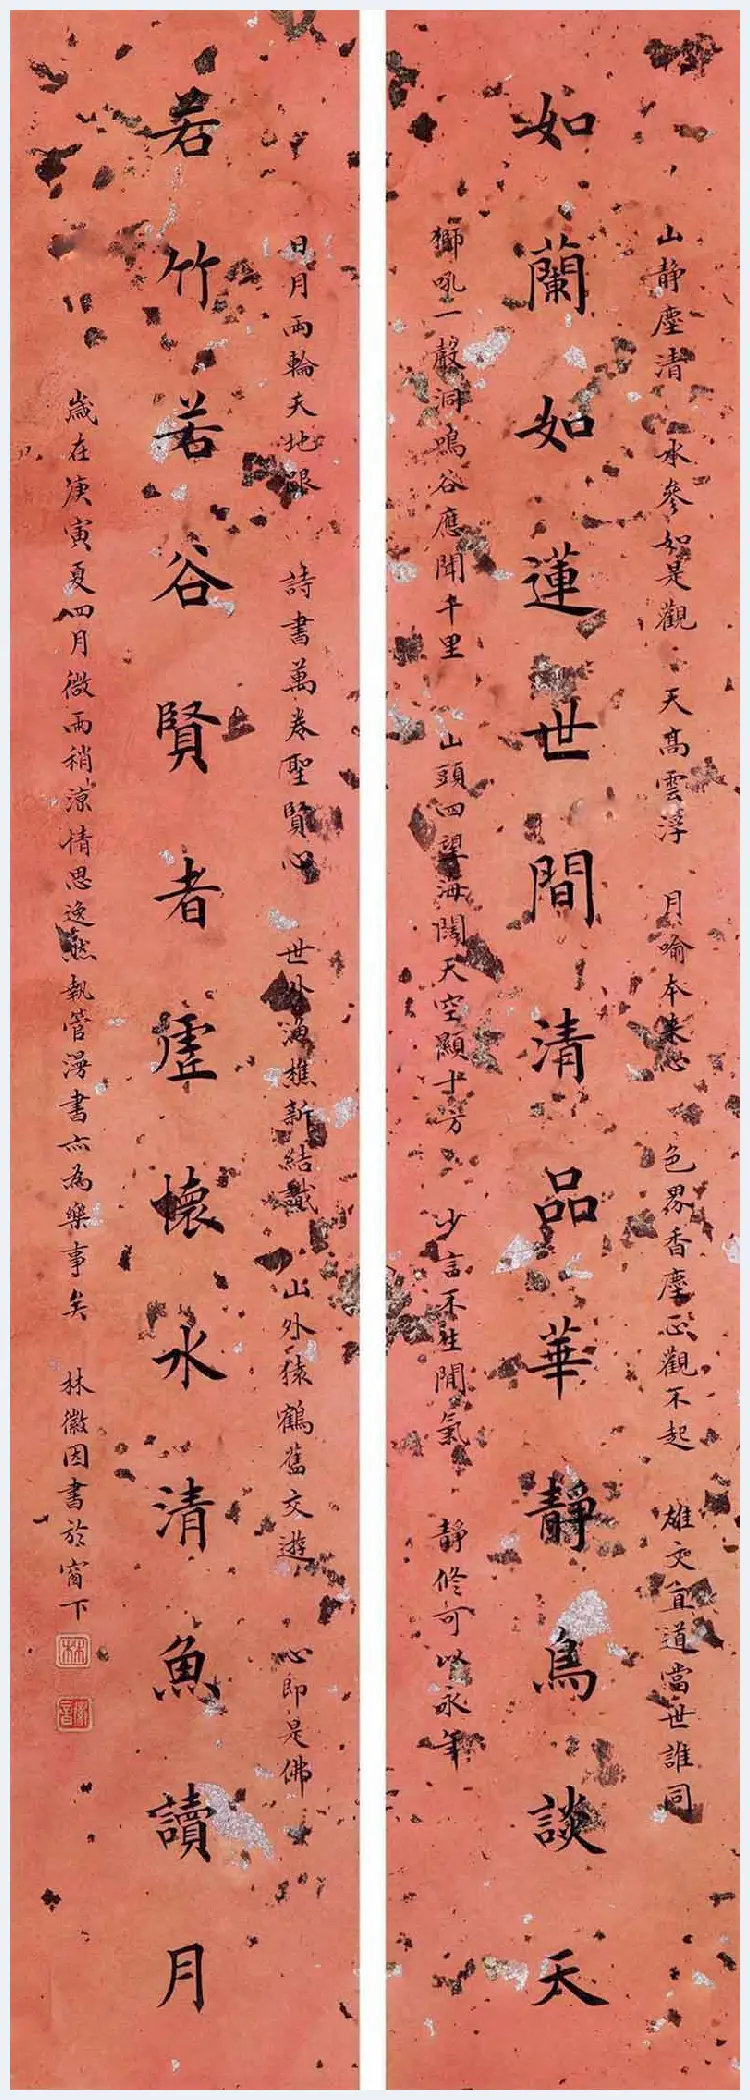 山靜塵清 水參如是觀 天高雲浮 月喻本來心 色界香塵正觀不起 雄文直道當世誰同
如蘭如蓮世間清品華靜鳥談天
獅吼一聲洞鳴谷應聞千里 山頭四望海闊天空顯十方 少言不生閒氣 靜修可以永年
日月兩輪天地眼 詩書萬卷聖賢心 世外漁樵新結識 山外猿鶴舊交遊 心即是佛
若竹若谷賢者虛懷水清魚讀月
歲在庚寅夏四月微雨稍涼情思逸然執管漫書亦為樂事矣 林徽因書於窗下
林
徽音